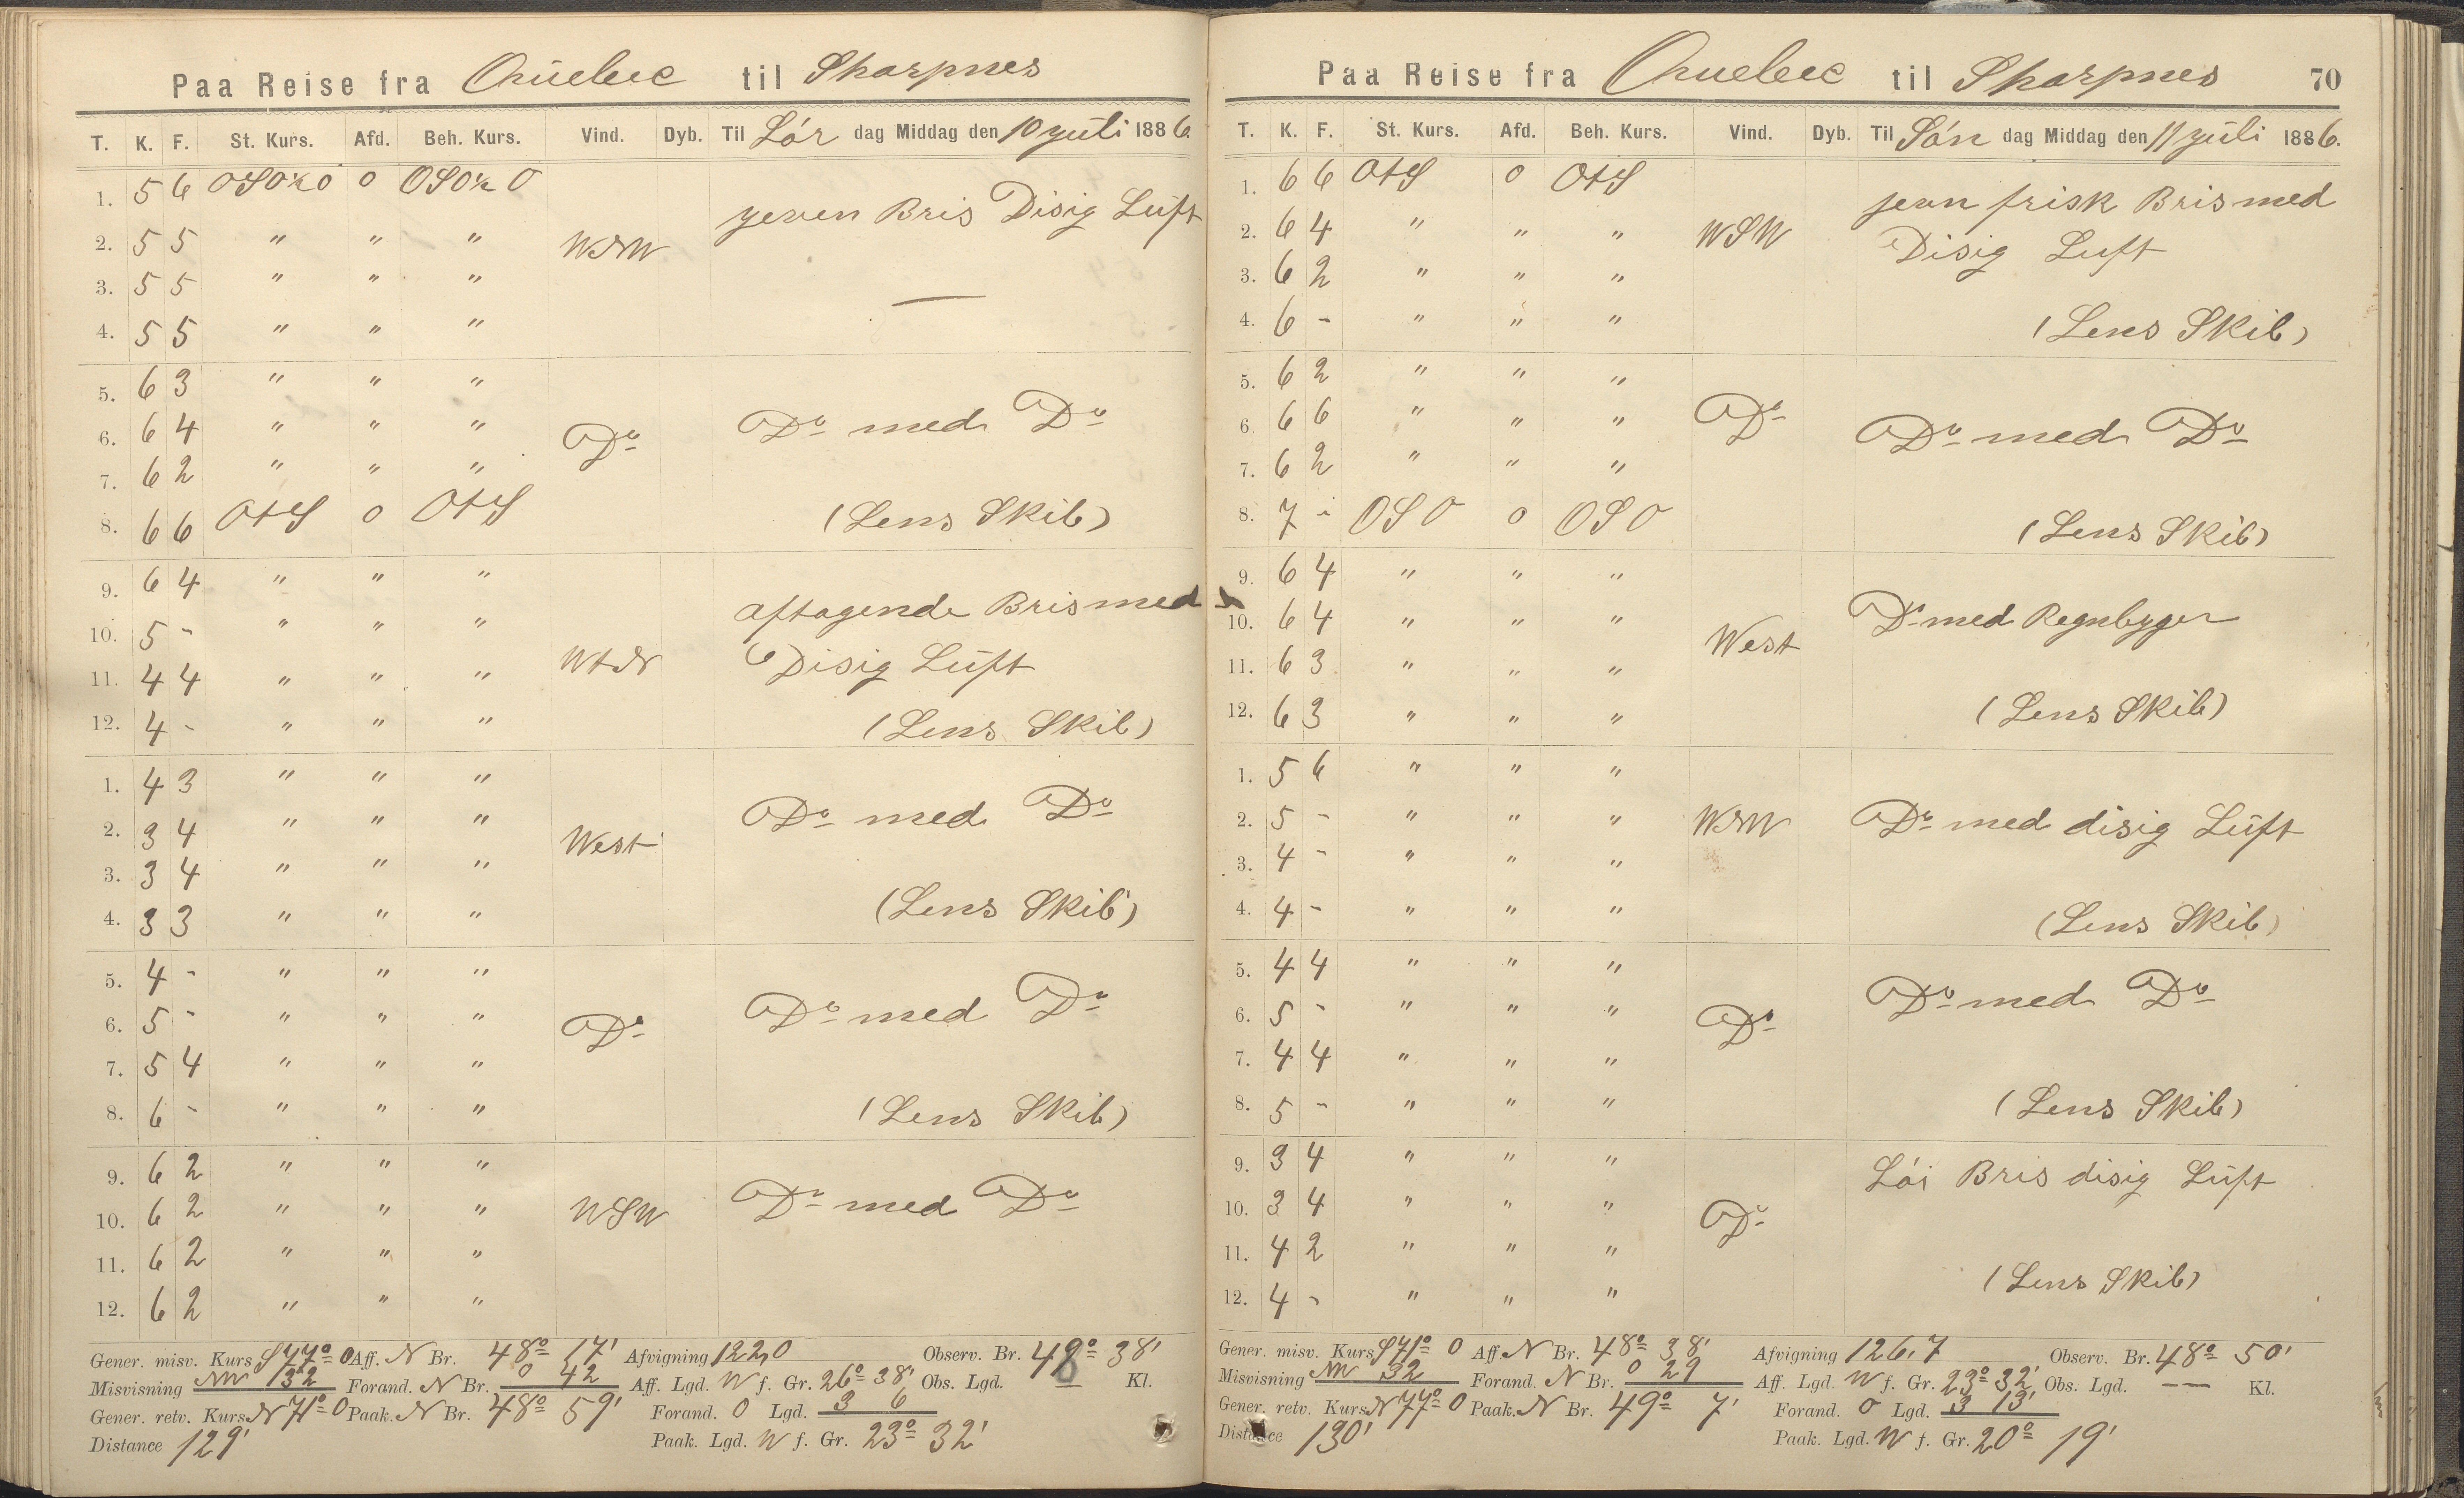 Paa Reise fra Quebec til Sharpnes
T. K. F. St. Kurs. Afd. Beh. Kurs. Vind. Dyb. Til Lör dag Middag den 10 Juli 1886.
1. 5 6 OSO½O 0 OSO½O jevn Bris Disig Luft
2. 5 5 " " " WNW
3. 5 5 " " " —
4. 5 5 " " "
5. 6 3 " " "
6. 6 4 " " " Do Do med Do
7. 6 2 " " "
8. 6 6 OtS 0 OtS (Lens Skib)
9. 6 4 " " " aftagende Bris med
10. 5 - " " "
11. 4 4 " " " WtN Disig Luft
12. 4 - " " " (Lens Skib)
1. 4 3 " " "
2. 3 4 " " " West Do med Do
3. 3 4 " " "
4. 3 3 " " " (Lens Skib)
5. 4 - " " "
6. 5 - " " " Do Do med Do
7. 5 4 " " "
8. 6 - " " " (Lens Skib)
9. 6 2 " " "
10. 6 2 " " " WSW Do med Do
11. 6 2 " " "
12. 6 2 " " "
Gener. misv. Kurs S 77° O Aff. N Br. 48° 17' Afvigning 122,0 Observ. Br. 48° 38'
Misvisning NW 32 Forand. N Br. 0 42 Aff. Lgd. W f. Gr. 26° 38' Obs. Lgd. — Kl.
Gener. retv. Kurs N 71° O Paak. N Br. 48° 59' Forand. O Lgd. 3 6
Distance 129' Paak. Lgd. W f. Gr. 23° 32'
Paa Reise fra Quebec til Sharpnes 70
T. K. F. St. Kurs. Afd. Beh. Kurs. Vind. Dyb. Til Sön dag Middag den 11 Juli 1886.
1. 6 6 OtS 0 OtS jevn frisk Bris med
2. 6 4 " " " WSW Disig Luft
3. 6 2 " " "
4. 6 - " " " (Lens Skib)
5. 6 2 " " "
6. 6 6 " " " Do Do med Do
7. 6 2 " " "
8. 7 - OSO 0 OSO (Lens Skib)
9. 6 4 " " "
10. 6 4 " " " West Do med Regnbyger
11. 6 3 " " "
12. 6 3 " " " (Lens Skib)
1. 5 6 " " "
2. 5 - " " " WNW Do med disig Luft
3. 4 - " " "
4. 4 - " " " (Lens Skib)
5. 4 4 " " "
6. 5 - " " " Do Do med Do
7. 4 4 " " "
8. 5 - " " " (Lens Skib)
9. 3 4 " " " Löi Bris disig Luft
10. 3 4 " " " Do
11. 4 2 " " "
12. 4 - " " " (Lens Skib)
Gener. misv. Kurs S 71° O Aff. N Br. 48° 38' Afvigning 126,7 Observ. Br. 48° 50'
Misvisning NW 32 Forand. N Br. 0 29 Aff. Lgd. W f. Gr. 23° 32' Obs. Lgd. — Kl.
Gener. retv. Kurs N 77° O Paak. N Br. 49° 7' Forand. O Lgd. 3 13'
Distance 130' Paak. Lgd. W f. Gr. 20° 19'